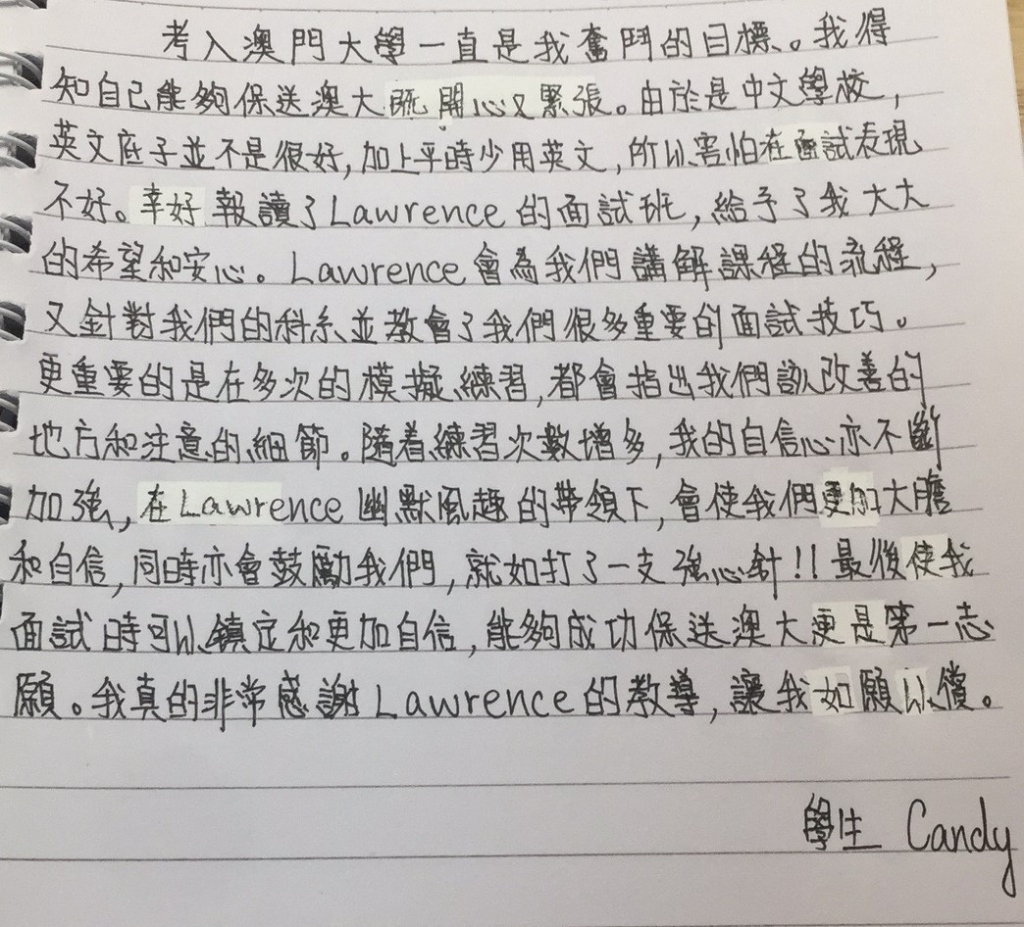 考入澳門大學一直是我奮鬥的目標。我得
知自己能夠保送澳大既開心又緊張。由於是中文學校，
英文底子並不是很好，加上平時少用英文，所以害怕在面試表現
不好。幸好報讀了Lawrence的面試班，給予了我大大
的希望和安心。Lawrence會為我們講解課程的流程，
又針對我們的科系並教會了我們很多重要的面試技巧。
更重要的是在多次的模擬練習，都會指出我們認改善的
地方和注意的細節。隨着練習次數增多，我的自信心亦不斷
加強，在Lawrence幽默風趣的帶領下，會使我們更加大膽
和自信，同時亦會鼓勵我們，就如打了一支強心針!!最後使我
面試時可以鎮定和更加自信，能夠成功保送澳大更是第一志
願。我真的非常感謝Lawrence的教導，讓我如願以償。
學生 Candy